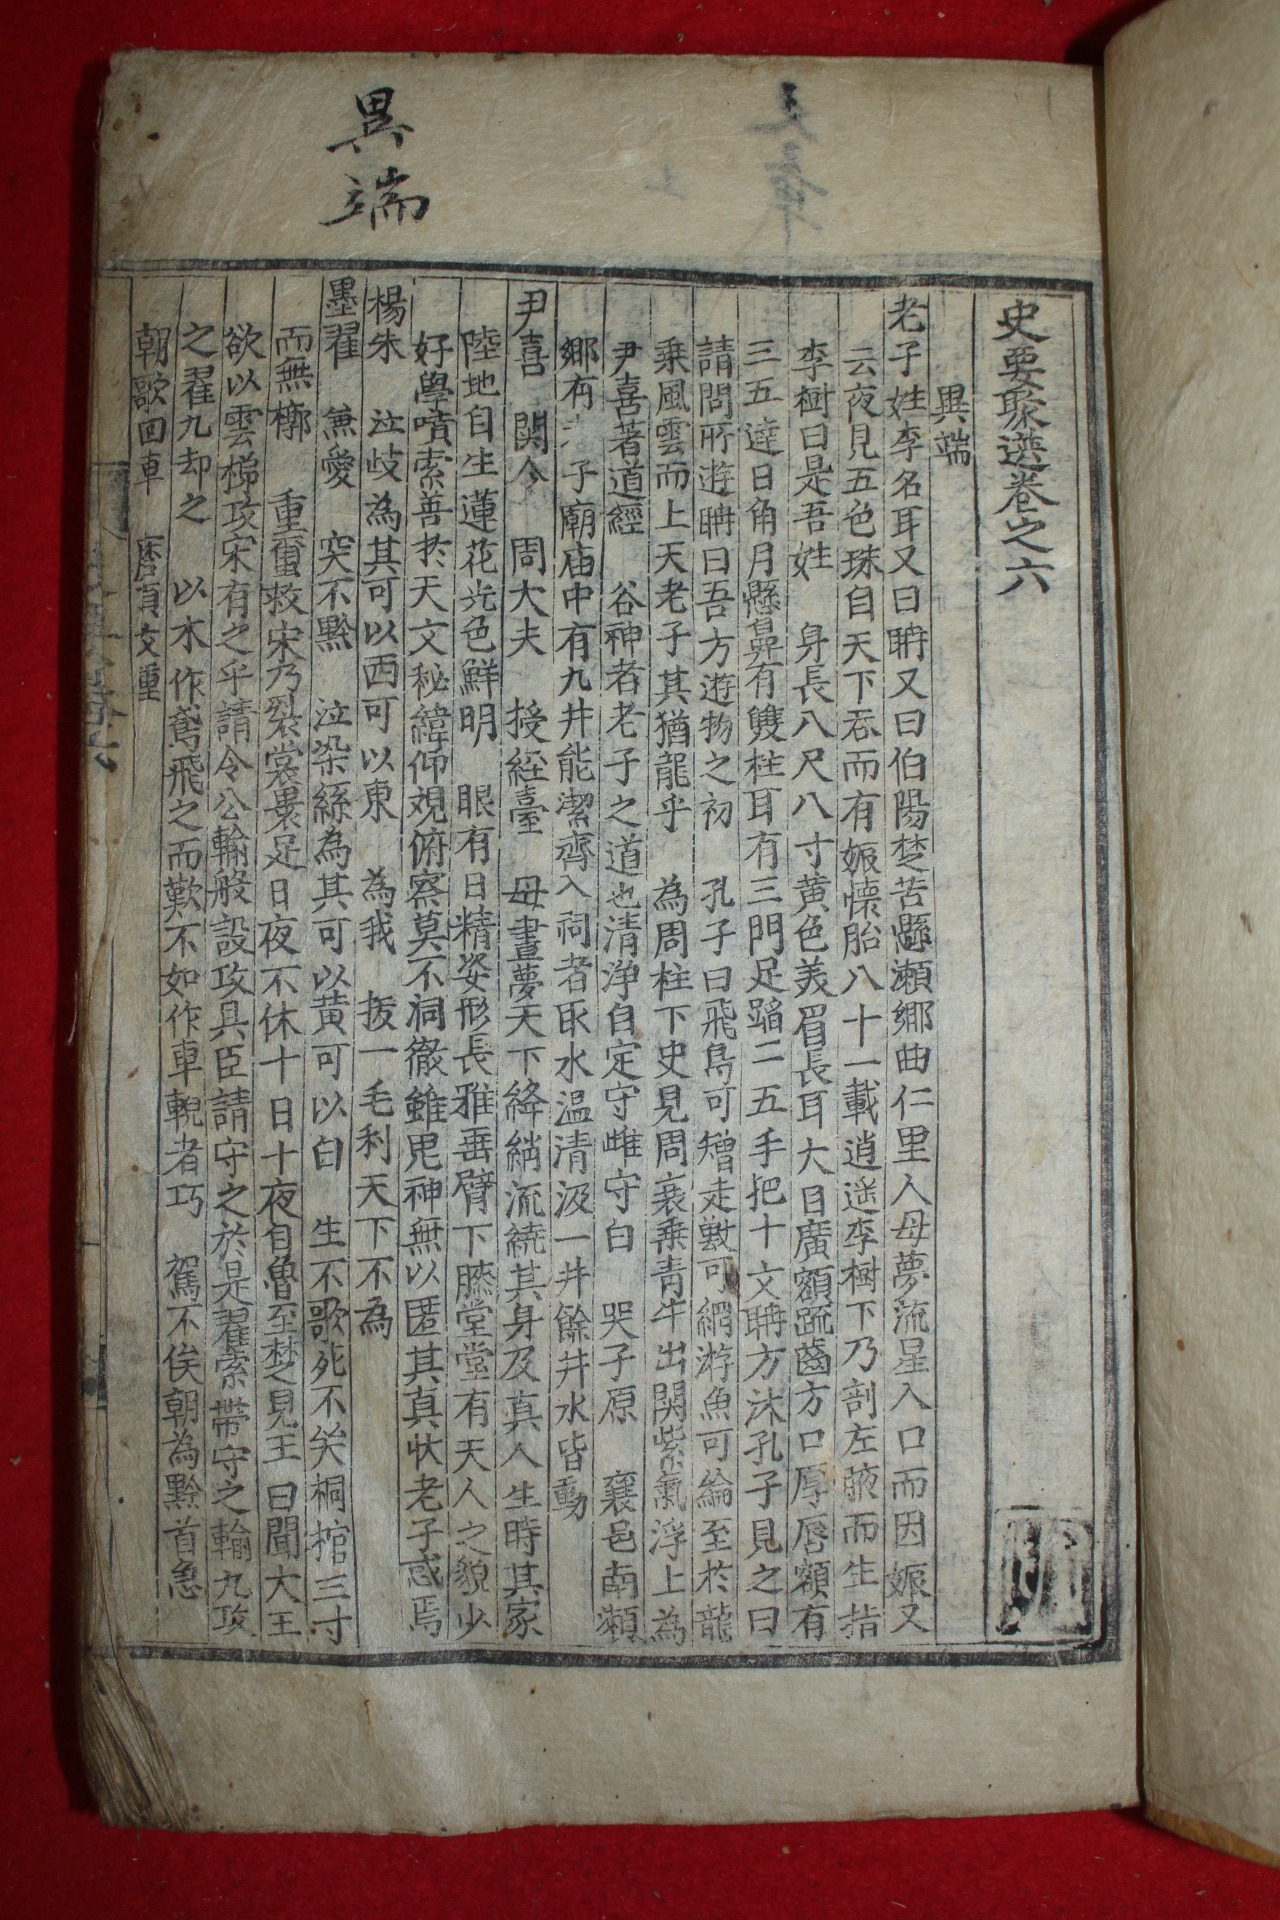 異端
史要聚選卷之六
異端
老子姓李名耳又曰聃又曰伯陽楚苦縣瀬鄉曲仁里人母夢流星入口而因娠又
云夜見五色珠自天下吞而有娠懷胎八十一載逍遙李樹下乃剖左腋而生指
李樹曰是吾姓 身長八尺八寸黄色美眉長耳大目廣額疏齒方口厚唇額有
三五達日角月懸鼻有雙柱耳有三門足蹈二五手把十文聃方沐孔子見之曰
請問所遊聃曰吾方遊物之初 孔子曰飛鳥可矰走獸可網游魚可綸至於龍
乗風雲而上天老子其猶龍乎 為周柱下史見周衰乗青牛出関紫氣浮上為
尹喜著道經 谷神者老子之道也清淨自定守雌守白 哭子原 襄邑南瀬
鄉有老子廟庙中有九井能潔齊入祠者臥水温清汲一井餘井水皆動
尹喜 関令 周大夫 授経臺 母晝夢天下絳綃流繞其身及真人生時其家
陸地自生蓮花光色鮮明 眼有日精姿形長雅垂臂下膝堂堂有天人之貌少
好學嘖索善於天文秘緯仰視俯察莫不洞徹雖鬼神無以匿其真状老子惑焉
楊朱 泣岐為其可以西可以東 為我 拔一毛利天下不為
墨翟 兼愛 突不黔 泣染絲為其可以黄可以白 生不歌死不矣桐棺三寸
而無槨 重蠒救宋乃裂裳裹足日夜不休十日十夜自魯至楚見王曰聞大王
欲以雲梯攻宋有之乎請令公輸般設攻具臣請守之於是翟索帶守之輸九攻
之翟九却之 以木作鳶飛之而歎不如作車輗者巧 駕不俟朝為黔首急
朝歌回車 磨頂